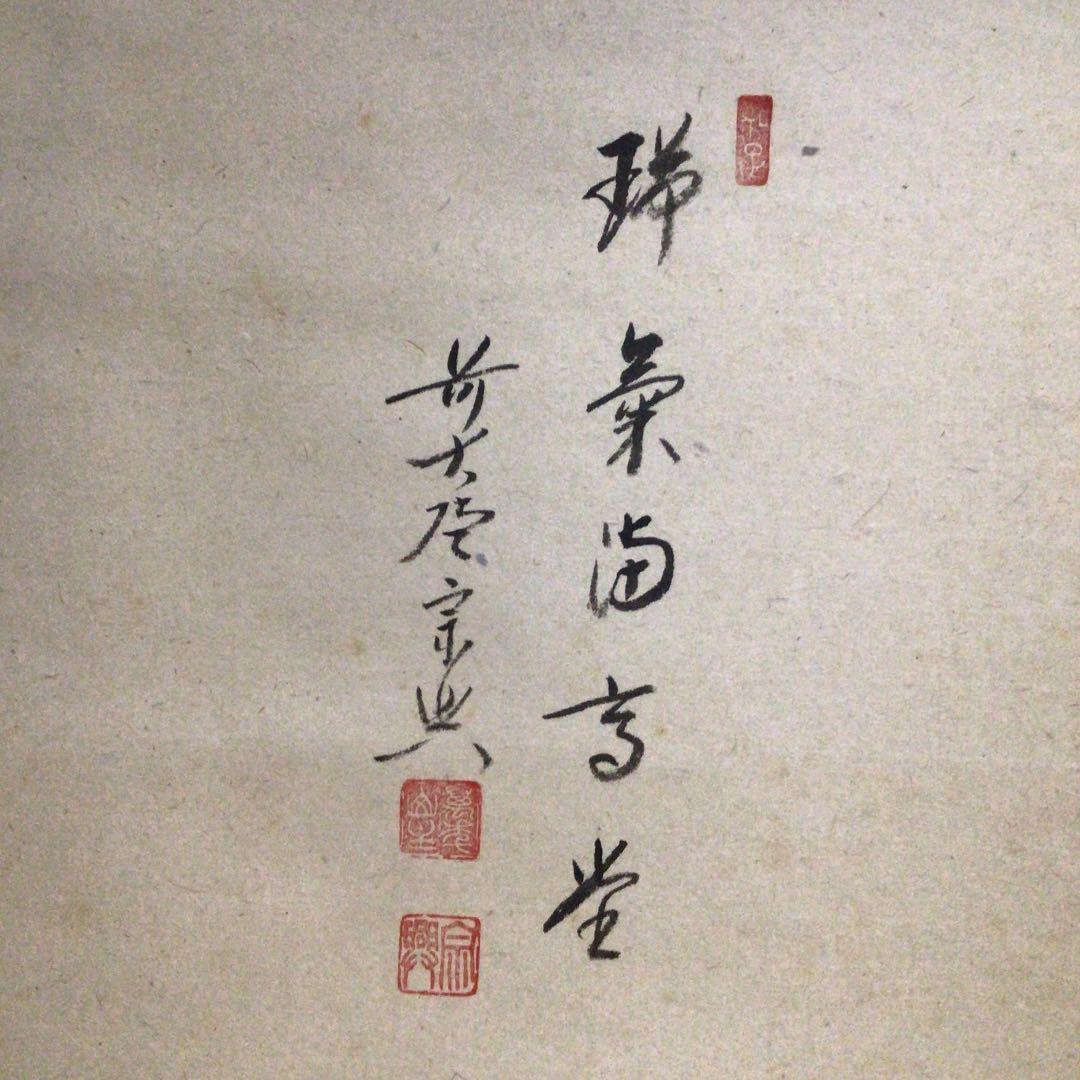 瑞氣満高堂
前大徳宗興
宗興